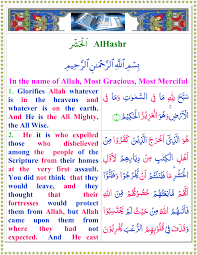 الْحَشْرِ AlHashr
بِسْمِ اللَّهِ الرَّحْمَنِ الرَّحِيمِ
In the name of Allah, Most Gracious, Most Merciful
1. Glorifies Allah whatever
is in the heavens and
whatever is on the earth.
And He is the All Mighty,
the All Wise.
سَبَّحَ لِلَّهِ مَا فِي السَّمَوَتِ وَمَا فِي
الْأَرْضِ وَهُوَ الْعَزِيزُ الْحَكِيمُ
2. He it is who expelled
those who disbelieved
among the people of the
Scripture from their homes
at the very first assault.
You did not think that they
would leave, and they
thought that their
fortresses would protect
them from Allah, but Allah
came upon them from
where they had not
expected. And He cast
هُوَ الَّذِي أَخْرَجَ الَّذِينَ كَفَرُوا مِنْ
أَهْلِ الْكِتَبِ مِنْ دِيَرِهِمْ لِأَوَّلِ
الْحَشْرِ مَا ظَنَنْتُمْ أَنْ يَخْرُجُوا
وَظَنُّوا أَنَّهُمْ مَانِعَتُهُمْ حُصُونُهُمْ
مِنَ اللَّهِ فَأَتَهُمُ اللَّهُ مِنْ حَيْثُ
لَمْ يَحْتَسِبُوا وَقَذَفَ
فِي قُلُوبِهِمُ الرُّعْبَ يُخْرِبُونَ